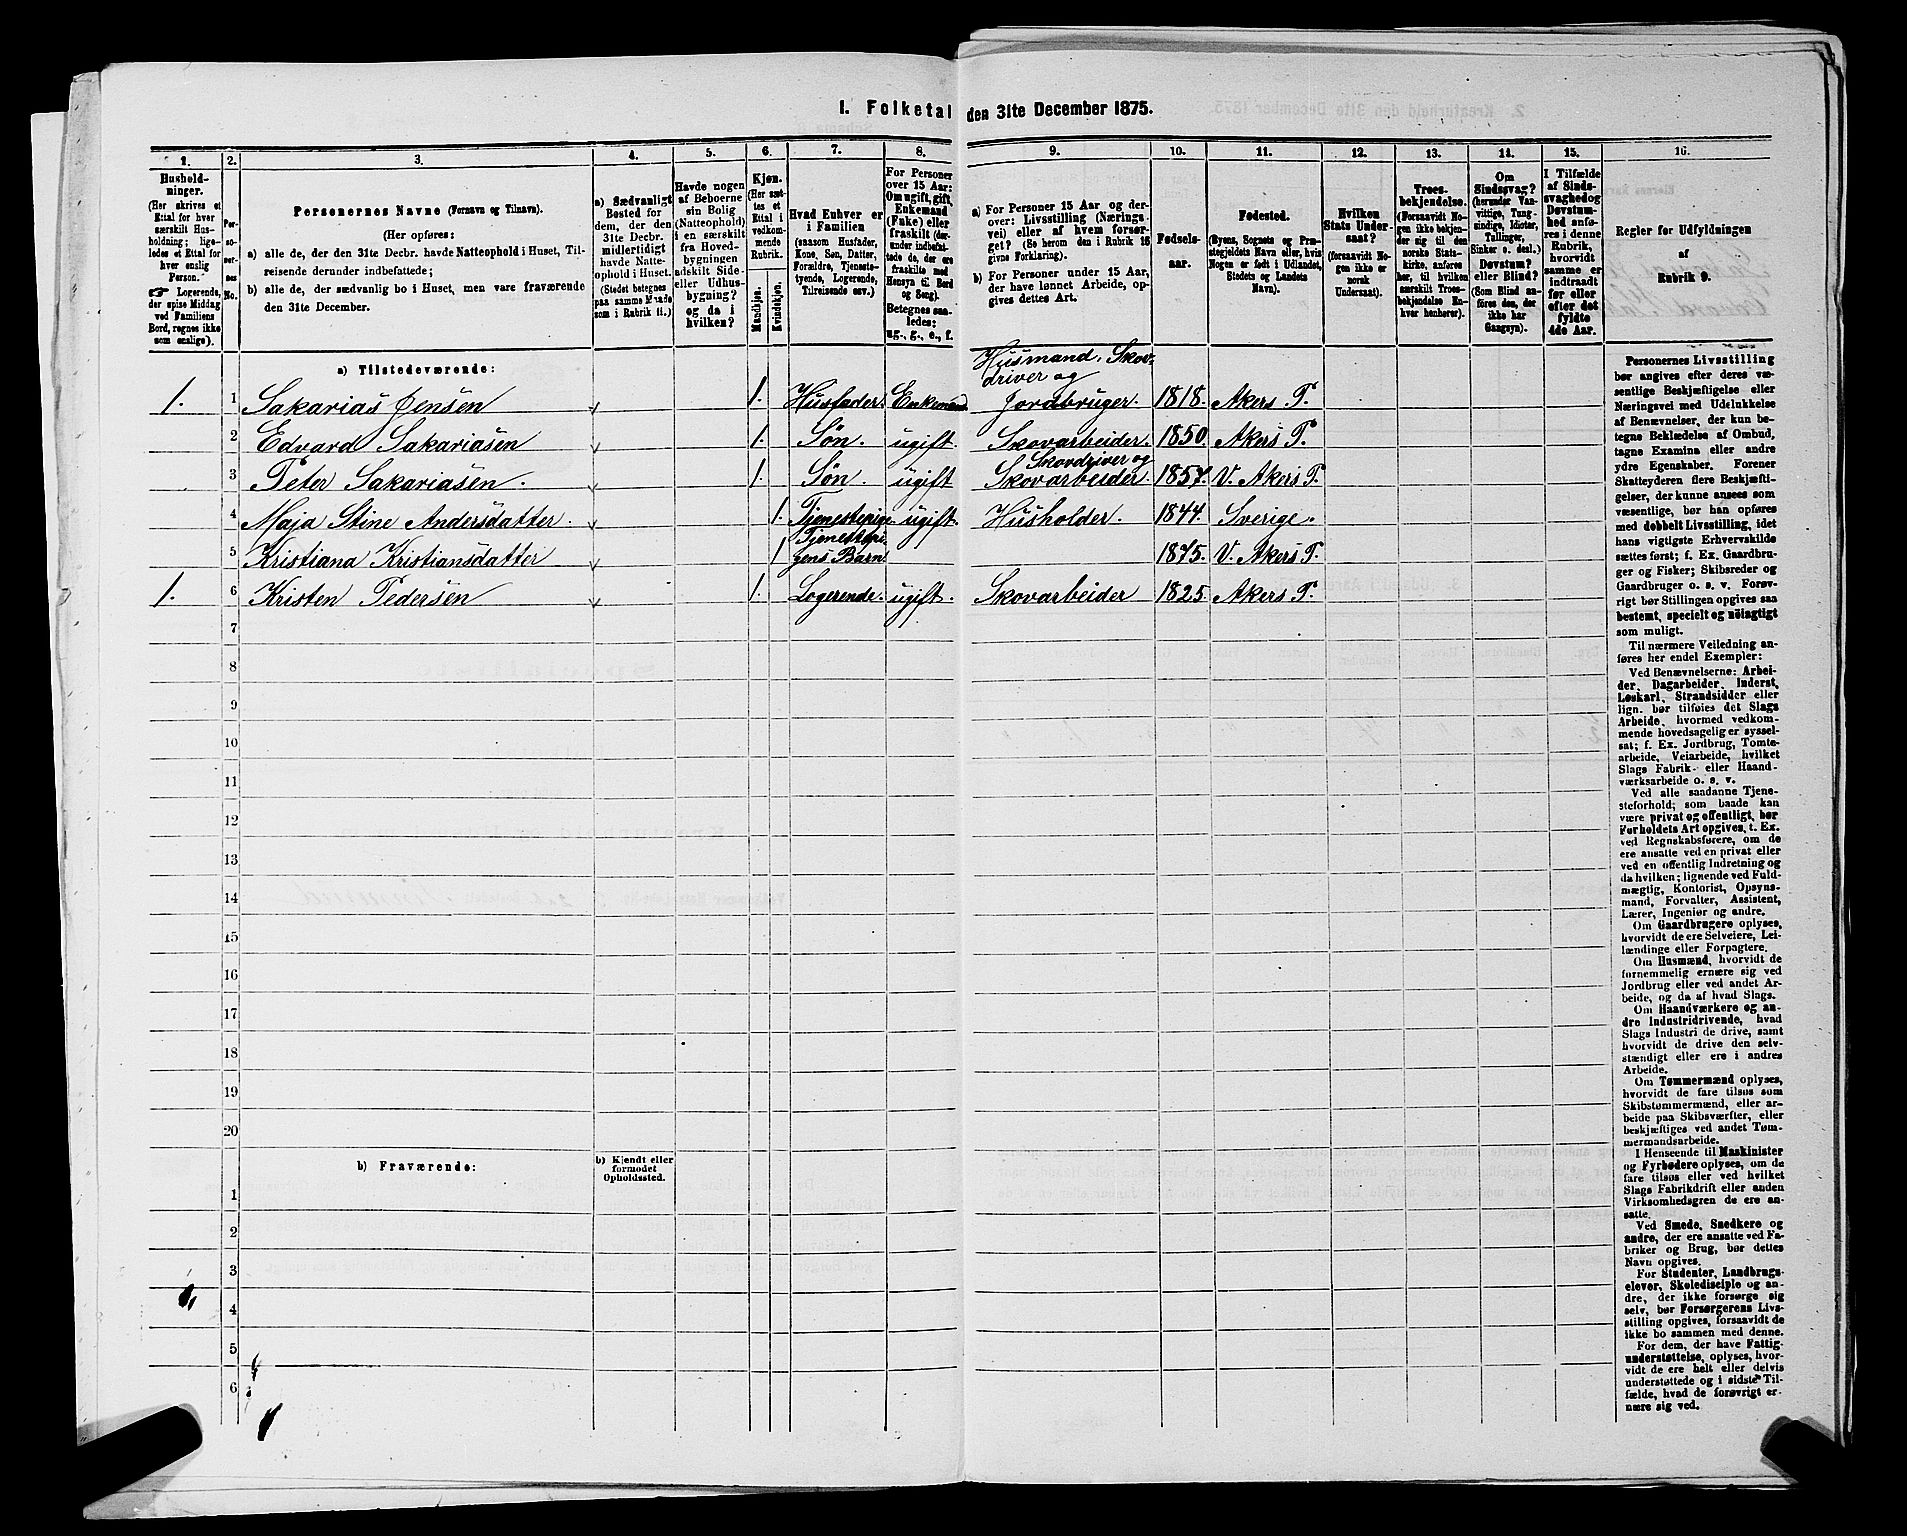 I. Folketal den 31te December 1875.
1. 2. 3. 4. 5. 6. 7. 8. 9. 10. 11. 12. 13. 14. 15. 16.
Husholdninger.
(Her skrives et
Ettal for hver
særskilt Husholdning; ligeledes et Ettal for
hver enslig
Person.
☞ Logerende,
der spise Middag
ved Familiens
Bord, regnes ikke
som enslige).
Personernes No.
Personernes Navne (Fornavn og Tilnavn).
(Her opføres:
a) alle de, der den 31te Decbr. havde Natteophold i Huset, Tilreisende derunder indbefattede;
b) alle de, der sædvanlig bo i Huset, men vare fraværende
den 31te December.
a) Sædvanligt
Bosted for
dem, der den
31te Decbr.
midlertidigt
havde Natteophold i Huset.
(Stedet betegnes
paa samme Maade
som i Rubrik 11.)
Havde nogen
af Beboerne
sin Bolig
(Natteophold)
i en særskilt
fra Hovedbygningen
adskilt Side-
eller Udhusbygning?
og da i
hvilken?
Kjøn.
(Her sættes et
Ettal i
vedkommende
Rubrik.
Mandkjøn.
Kvindekjøn.
Hvad Enhver er
i Familien
(saasom Husfader,
Kone, Søn, Datter,
Forældre, Tjenestetyende, Logerende,
Tilreisende osv.)
For Personer
over 15 Aar:
Om ugift, gift,
Enkemand
(Enke) eller
fraskilt (derunder indbefattede de, der
ere fraskilte med
Hensyn til Bord
og Seng).
Betegnes saaledes:
ug., g., e., f.
a) For Personer 15 Aar og derover: Livsstilling (Næringsvei) eller af hvem forsørget? (Se herom den i Rubrik 16
givne Forklaring).
b) For Personer under 15 Aar,
der have lønnet Arbeide, opgives dettes Art.
Fødselsaar.
Fødested.
(Byens, Sognets og Præstegjeldets Navn eller, hvis
Nogen er født i Udlandet,
Stedets og Landets
Navn).
Hvilken
Stats Undersaat?
(forsaavidt Nogen ikke er
norsk
Undersaat).
Troesbekjendelse.
(Forsaavidt Nogen ikke bekjender sig til den
norske Statskirke, anføres
her, til hvilken
særskilt Troesbekjendelse Enhver henhører).
Om
Sindssvag?
(herunder Vanvittige, Tungsindige, Idioter,
Tullinger,
Sinker o. desl.).
Døvstum?
eller Blind?
(Som Blind anføres den, der
ikke har
Gangsyn).
I Tilfælde
af Sindssvaghed og
Døvstumhed anføres i denne
Rubrik,
hvorvidt
samme er
indtraadt
før eller
efter det
fyldte
4de Aar.
Regler for Udfyldningen
af
Rubrik 9.
a) Tilstedeværende:
Husmand, Skovdriver og
1. 1 Sakarias Jensen 1. Husfader. Enkemand. Jordbruger. 1818. Akers P.
2 Edvard Sakariasen 1. Søn. ugift. Skovarbeider. 1850. Akers P.
Skovdriver og
3 Peter Sakariasen. 1. Søn. ugift Skovarbeider. 1857. V. Akers P.
4 Maja Stine Andersdatter. 1. Tjenestepige ugift. Husholder. 1844. Sverige.
5 Kristiana Kristiansdatter 1 Tjenestepigens Barn 1875. V. Akers P.
1. 6 Kristen Pedersen 1. Logerende. ugift. Skovarbeider 1825. Akers P.
7
8
9
10
11
12
13
14
15
16
17
18
19
20
b) Fraværende:
b) Kjendt eller
formodet
Opholdssted.
1
2
3
4
5
6
Personernes Livsstilling
bør angives efter deres væsentlige Beskjæftigelse eller
Næringsvei med Udelukkelse
af Benævnelser, der kun betegne Beklædelse af Ombud,
tagne Examina eller andre
ydre Egenskaber. Forener
Skatteyderen flere Beskjæftigelser, der kunne ansees som
væsentlige, bør han opføres
med dobbelt Livsstilling, idet
hans vigtigste Erhvervskilde
sættes først; f. Ex. Gaardbruger og Fisker; Skibsreder og
Gaardbruger o. s. v. Forøvrigt bør Stillingen opgives saa
bestemt, specielt og nöiagtigt
som muligt.
Til nærmere Veiledning anføres her endel Exempler:
Ved Benævnelserne: Arbeider, Dagarbeider, Inderst,
Løskarl, Strandsidder eller
lign. bør tilføies det Slags
Arbeide, hvormed vedkommende hovedsagelig er sysselsat; f. Ex. Jordbrug, Tomtearbeide, Veiarbeide, hvilket
Slags Fabrik- eller Haandværksarbeide o. s. v.
Ved alle saadanne Tjenesteforhold; som baade kan
være privat og offentligt, bør
Forholdets Art opgives, t. Ex.
ved Regnskabsførere, om de
ere ansatte ved en privat eller
ved en offentlig Indretning og
da hvilken; lignende ved Fuldmægtig, Kontorist, Opsynsmand, Forvalter, Assistent,
Lærer, Ingeniør og andre.
Om Gaardbrugere oplyses,
hvorvidt de ere Selveiere, Leilændinge eller Forpagtere.
Om Husmænd, hvorvidt de
fornemmelig ernære sig ved
Jordbrug eller ved andet Arbeide, og da af hvad Slags.
Om Haandværkere og andre Industridrivende, hvad
Slags Industri de drive, samt
hvorvidt de drive den selvstændigt eller ere i andres
Arbeide.
Om Tømmermænd oplyses,
hvorvidt de fare tilsøs som
Skibstømmermænd, eller arbeide paa Skibsværfter, eller
beskjæftiges ved andet Tømmermandsarbeide.
I Henseende til Maskinister
og Fyrbødere oplyses, om de
fare tilsøs eller ved hvilket
Slags Fabrikdrift eller anden
Virksomhedsgren de ere ansatte.
Ved Smede, Snedkere og
andre, der ere ansatte ved Fabriker og Brug, bør dettes
Navn opgives.
For Studenter, Landbrugselever, Skoledisciple og andre, der ikke forsørge sig
selv, bør Forsørgerens Livsstilling opgives, forsaavidt de
ikke bo sammen med denne.
For dem, der have Fattigunderstøttelse, oplyses, hvorvidt de ere helt eller delvis
understøttede og i sidste Tilfælde, hvad de forøvrigt ernære sig ved.